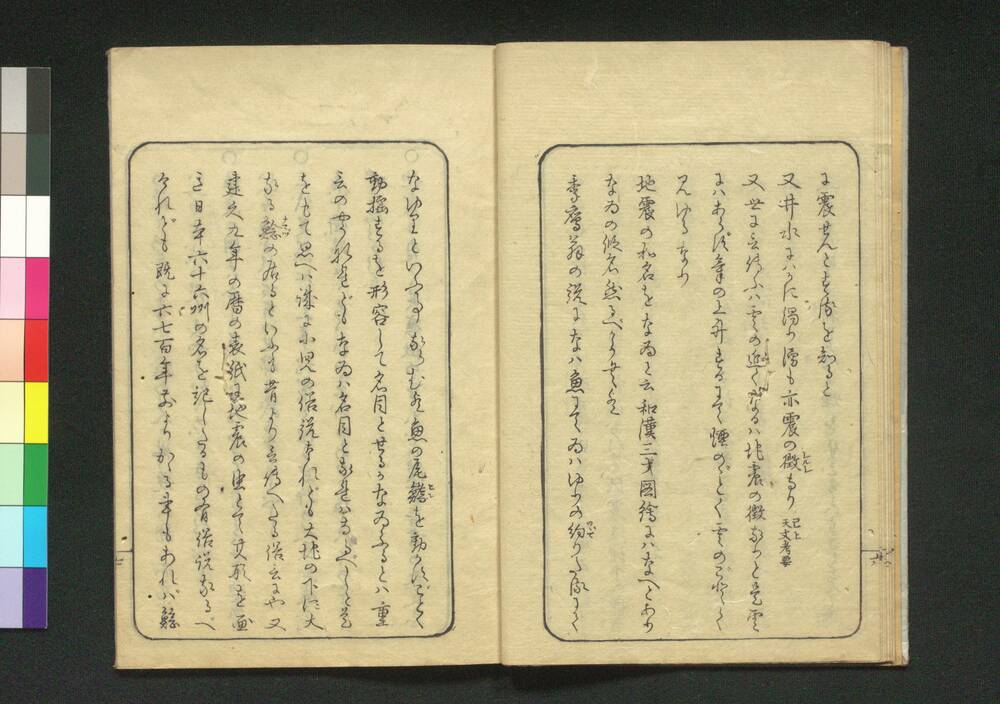 に震せんとするを知ると
又井水にはかに濁り湧も亦震の徴なり 已上天文考要
又世に云伝ふは雲の近くなるは地震の徴なりと是雲
にはあらず気の上昇するにて煙のごとく雲のごとく
見ゆるなり
地震の和名をなゐと云和漢三才図絵にはなへとあり
なゐの仮名然るべからずといへり
季鷹翁の説になは魚にてゐはゆりの約りたるにて
なゆりといふことなるべし魚の尾鰭を動かすごとく
動揺するを形容して名目とせるかなゐふるとは重
言のやうなれどもなゐは名目となれば
をもて思へば誠に小児の俗説なれども大地の下に大
なる鯰の居るといふも昔より云伝へたる俗言にや又
建久九年の暦の表紙に地震の虫とて其形を画
き日本六十六州の名を記したるもの有俗説なるべ
けれども既に六七百年前よりかゝる事もあれば鯰